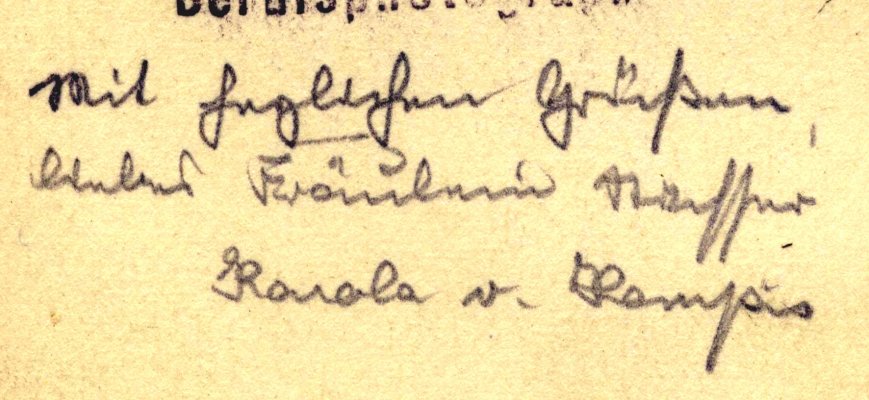 Berufsphotograph
Mit herzlichen Grüßen,
liebes Fräulein
Karola v. Kempis